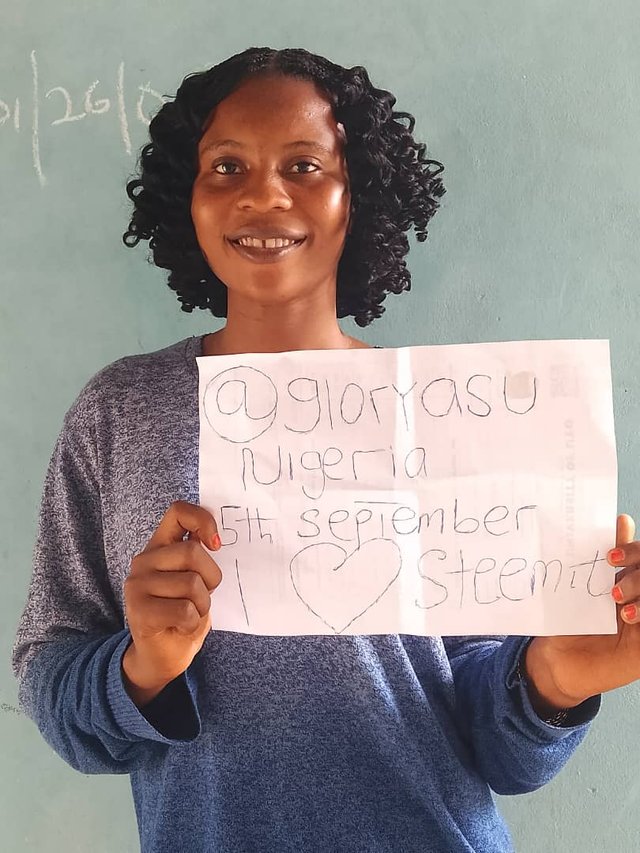 01/26/0
@gloryasu
Nigeria
5th september
I ♡ Steemit